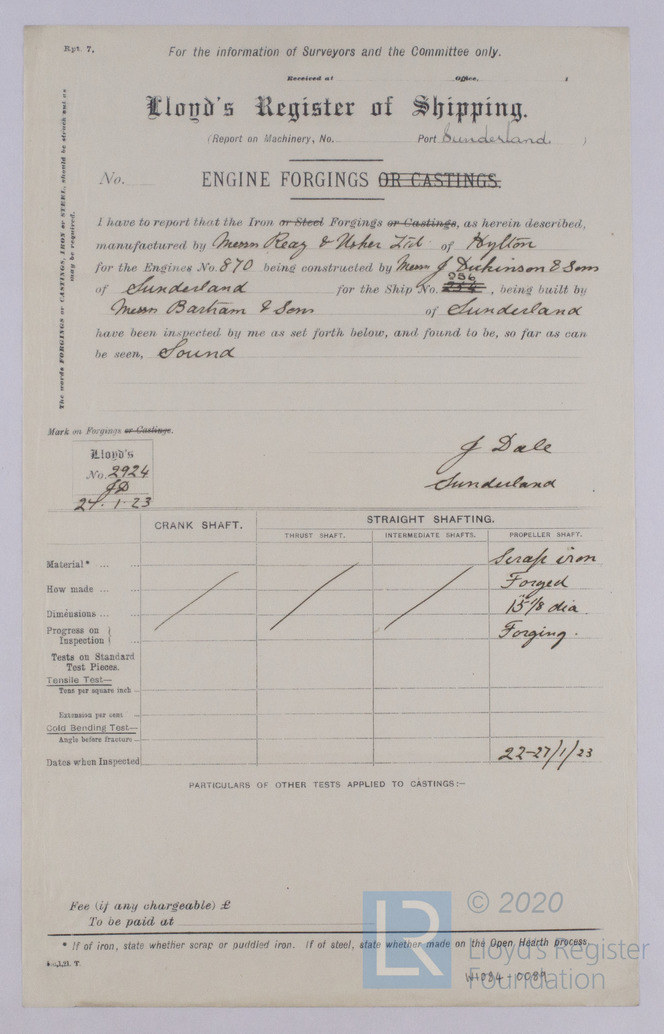 Rpt. 7.
For the information of Surveyors and the Committee only.
Received at Office,
Lloyd's Register of Shipping.
(Report on Machinery, No. Port Sunderland. )
No. ENGINE FORGINGS OR CASTINGS.
The words FORGINGS or CASTINGS, IRON or STEEL, should be struck out as
may be required.
I have to report that the Iron or Steel Forgings or Castings, as herein described,
manufactured by Messrs Reay & Usher Ltd of Hylton
for the Engines No. 870 being constructed by Messrs J Dickinson & Sons
256
of Sunderland for the Ship No. , being built by
Messrs Bartram & Sons of Sunderland
have been inspected by me as set forth below, and found to be, so far as can
be seen, Sound
Mark on Forgings or Castings.
Lloyd's
No. 2924
JD
24.1.23
J Dale
Sunderland
CRANK SHAFT. STRAIGHT SHAFTING.
THRUST SHAFT. INTERMEDIATE SHAFTS. PROPELLER SHAFT.
Material* ... ... Scrap iron
How made ... ... Forged
Dimensions ... ... 15⅞" dia.
Progress on Inspection } Forging.
Tests on Standard
Test Pieces.
Tensile Test—
Tons per square inch -
Extension per cent -
Cold Bending Test—
Angle before fracture -
Dates when Inspected 22-27/1/23
PARTICULARS OF OTHER TESTS APPLIED TO CASTINGS:—
Fee (if any chargeable) £
To be paid at
* If of iron, state whether scrap or puddled iron. If of steel, state whether made on the Open Hearth process.
W1034-0089
LR
© 2020
Lloyd's Register
Foundation